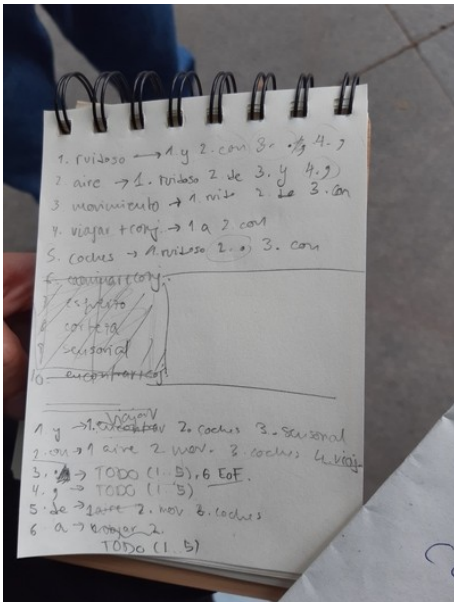 1. ruidoso → 1. y 2. con 3. . 4. ,
2. aire → 1. ruidoso 2. de 3. y 4. ,
3 movimiento → 1. ruido 2. de 3. con
4. viajar + conj. → 1 a 2. con
5. coches → 1. ruidoso 2. , 3. con
6. + conj.
7 esfuerzo
8 corteza
9 sensorial
10 encontrar + conj
viajar
1 y → 1. 2. coches 3. sensorial
2. con → 1 aire 2. mov. 3. coches 4. viaj.
3. . → TODO (1..5), 6 EoF.
4. , → TODO (1..5)
5. de → 1 aire 2. mov 3. coches
6 a → viajar 2.
TODO (1..5)